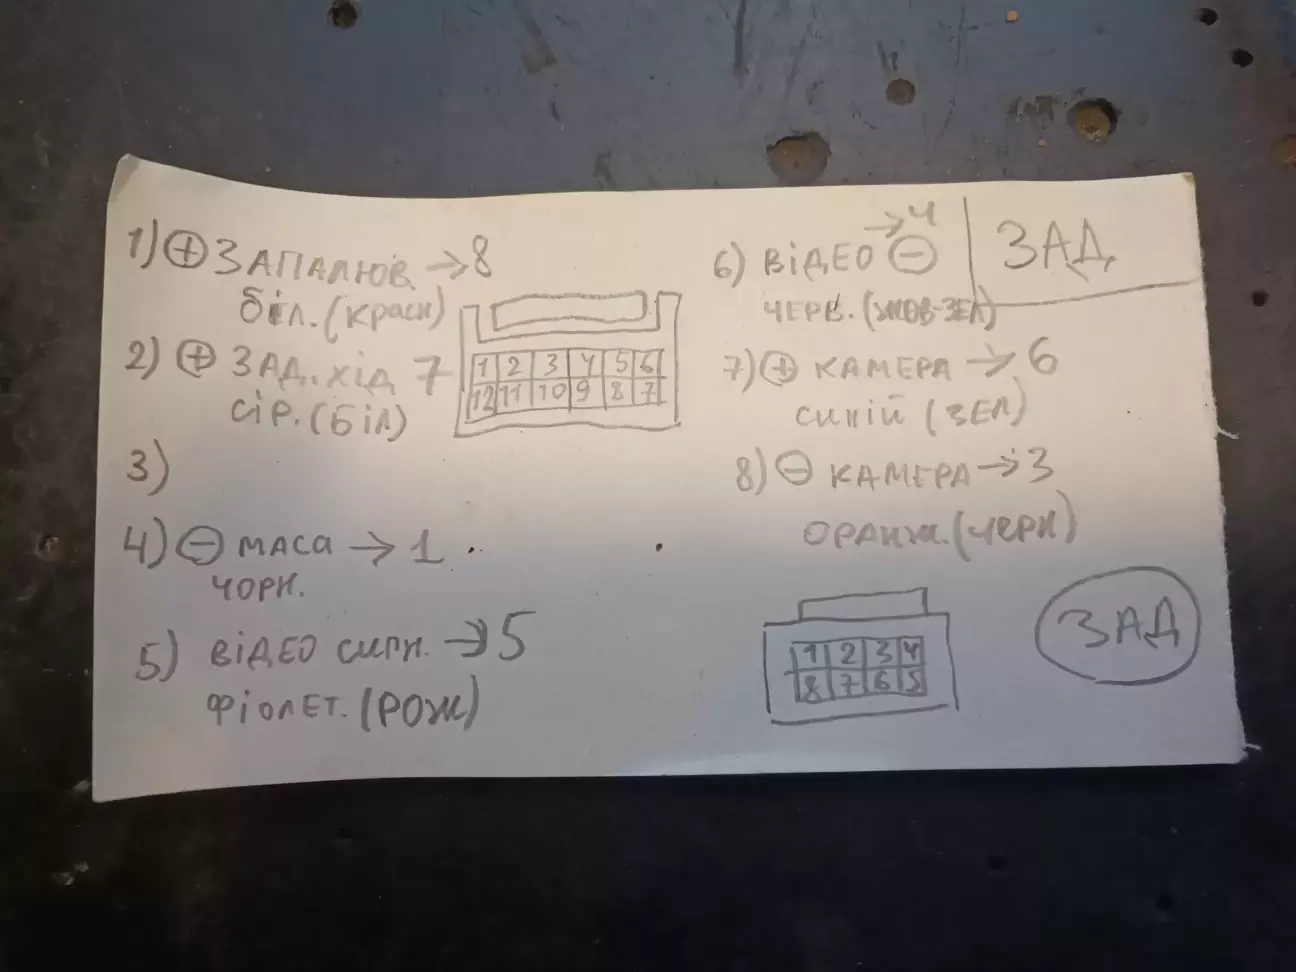 1) ⊕ ЗАПАЛЮВ. → 8
біл. (красн)
2) ⊕ ЗАД. ХІД 7
СІР. (БІЛ)
3)
4) ⊖ МАСА → 1
ЧОРН.
5) ВІДЕО СИГН. → 5
ФІОЛЕТ. (РОЖ)
1 2 3 4 5 6
12 11 10 9 8 7
6) ВІДЕО ⊖ → 4
ЧЕРВ. (ЖОВ-ЗЕЛ)
ЗАД
7) ⊕ КАМЕРА → 6
СИНІЙ (ЗЕЛ)
8) ⊖ КАМЕРА → 3
ОРАНЖ. (ЧЕРН)
1 2 3 4
8 7 6 5
ЗАД